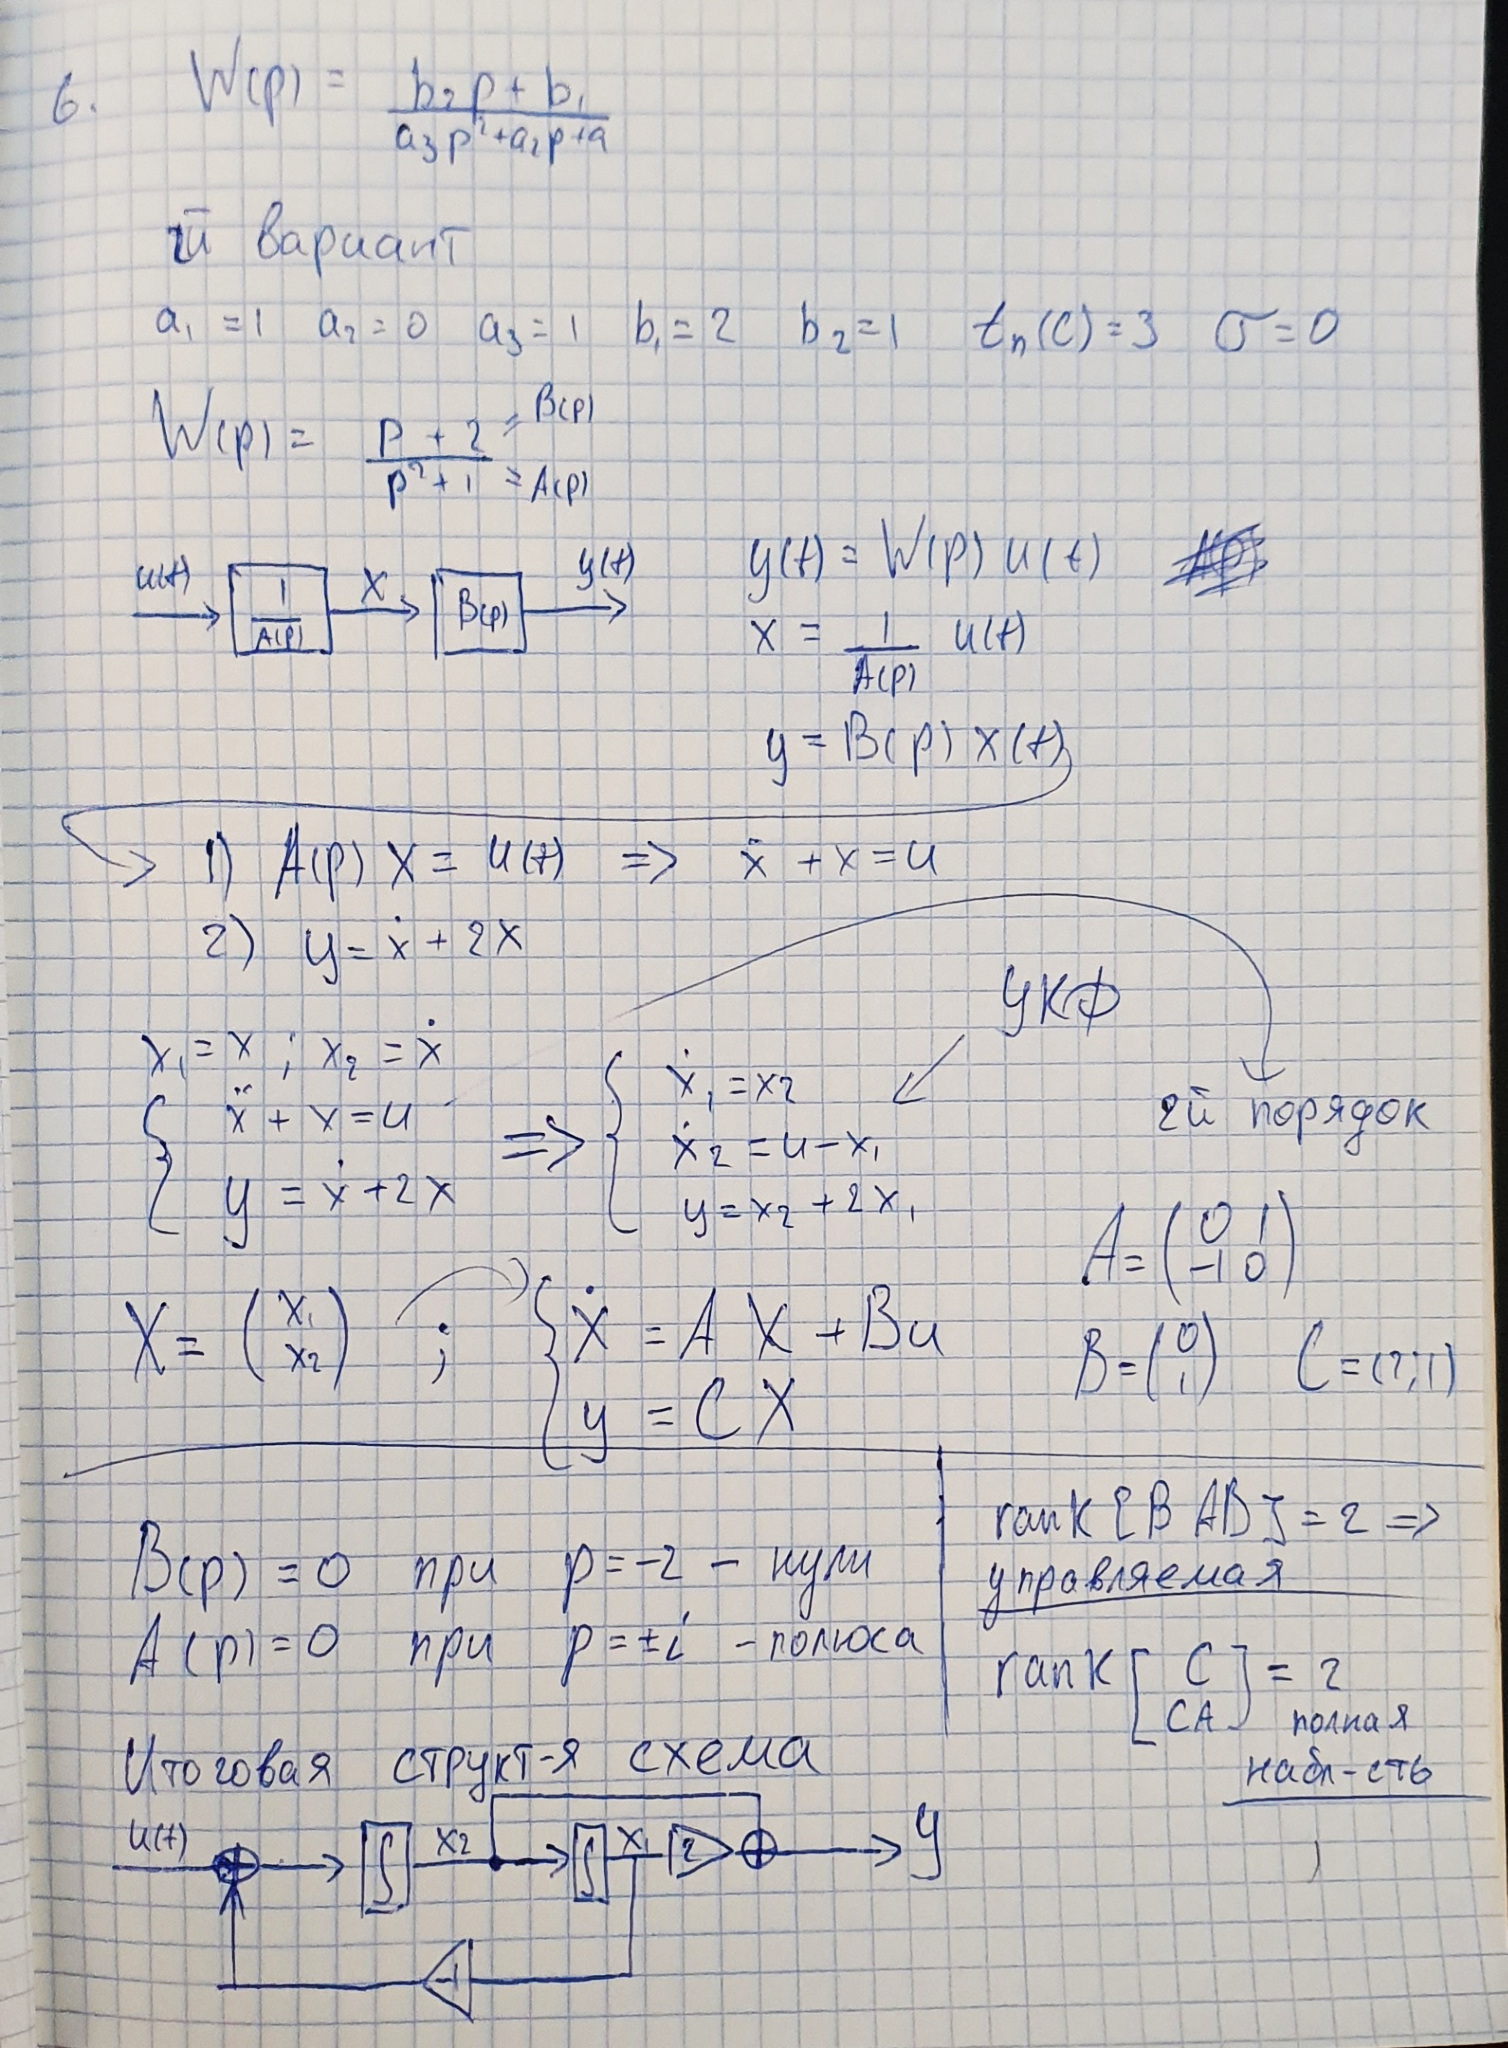 6. W(p) = b₂p + b₁ / a₃p²+a₂p+a
2й вариант
a₁ =1 a₂=0 a₃=1 b₁=2 b₂=1 tₙ(c)=3 σ=0
W(p) = p + 2 / p²+1 = B(p) = A(p)
u(t) 1/A(p) X B(p) y(t)
y(t) = W(p) u(t)
x = 1/A(p) u(t)
y = B(p) x(t)
1) A(p) X = u(t) => ẍ + x = u
2) y = ẋ + 2x
УКФ
x₁ = x ; x₂ = ẋ
{ ẍ + x = u
y = ẋ + 2x
=> { ẋ₁ = x₂
ẋ₂ = u - x₁
y = x₂ + 2x₁
2й порядок
A = (0 1
-1 0)
X = (x₁
x₂) ;
{ Ẋ = A X + Bu
y = C X
B = (0
1) C = (2;1)
B(p) = 0 при p = -2 - нули
A(p) = 0 при p = ±i - полюса
rank [B AB] = 2 =>
управляемая
rank [C
CA] = 2
полная
набл-сть
Итоговая структ-я схема
u(t) + ∫ x₂ ∫ x₁ 2 + y
-1